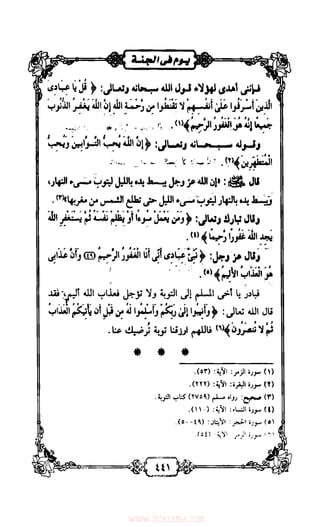 يوم فى الجنة
فإننى أهدى لهؤلاء قول الله سبحانه وتعالى: ﴿ قُلْ يَا عِبَادِىَ
الَّذِينَ أَسْرَفُوا عَلَىٰ أَنفُسِهِمْ لا تَقْنَطُوا مِن رَّحْمَةِ اللَّهِ إِنَّ اللَّهَ يَغْفِرُ الذُّنُوبَ
جَمِيعًا إِنَّهُ هُوَ الْغَفُورُ الرَّحِيمُ ﴾(١).
وقوله سبحانه وتعالى: ﴿إِنَّ اللَّهَ يُحِبُّ التَّوَّابِينَ وَيُحِبُّ
الْمُتَطَهِّرِينَ﴾(٢).
قال ﷺ: «إن الله عز وجل يبسط يده بالليل ليتوب مسىء النهار،
ويبسط يده بالنهار ليتوب مسىء الليل حتى تطلع الشمس من مغربها»(٣).
وقال تبارك وتعالى: ﴿ وَمَن يَعْمَلْ سُوءًا أَوْ يَظْلِمْ نَفْسَهُ ثُمَّ يَسْتَغْفِرِ اللَّهَ
يَجِدِ اللَّهَ غَفُورًا رَّحِيمًا ﴾(٤).
وقال عز وجل: ﴿ نَبِّئْ عِبَادِى أَنِّى أَنَا الْغَفُورُ الرَّحِيمُ (٤٩) وَأَنَّ عَذَابِى
هُوَ الْعَذَابُ الأَلِيمُ ﴾(٥).
فبادر يا أخى المسلم إلى التوبة ولا تؤجل فعذاب الله أليم، فقد
قال الله تعالى: ﴿ وَأَنِيبُوا إِلَىٰ رَبِّكُمْ وَأَسْلِمُوا لَهُ مِن قَبْلِ أَن يَأْتِيَكُمُ الْعَذَابُ
ثُمَّ لا تُنصَرُونَ﴾(٦) فاللهم ارزقنا توبة تُرضيك عنا.
* * *
(١) سورة الزمر: الآية: (٥٣).
(٢) سورة البقرة: الآية: (٢٢٢).
(٣) صحيح: رواه مسلم (٢٧٥٩) كتاب التوبة.
(٤) سورة النساء: الآية: (١١٠).
(٥) سورة الحجر: الآيتان: (٤٩-٥٠).
(٦) سورة الزمر: الآية: (٥٤).
٤٤١
www.ibtesama.com